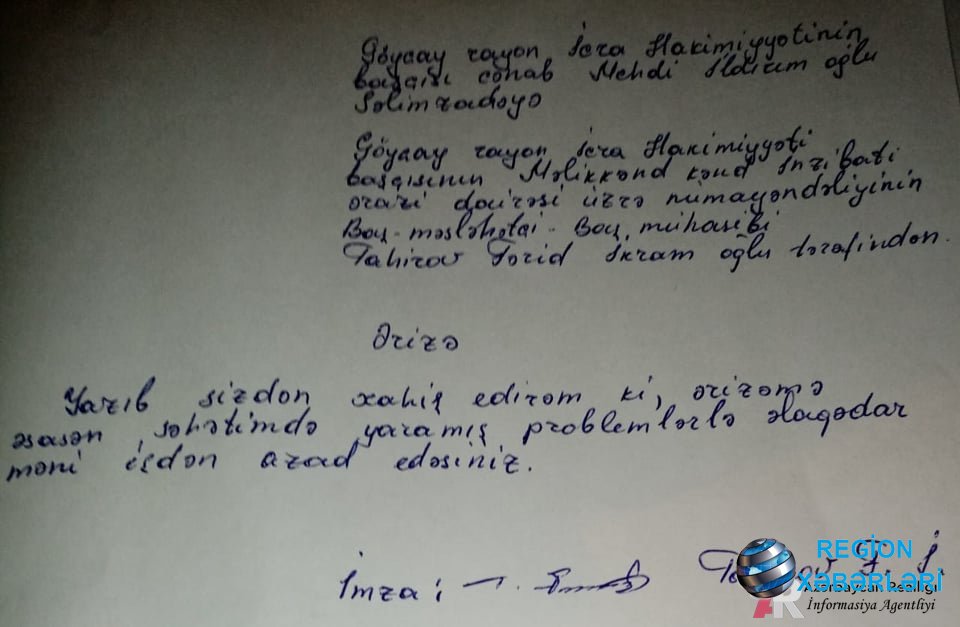 Göyçay rayon İcra Hakimiyyətinin
başçısı cənab Mehdi İldırım oğlu
Səlimzadəyə
Göyçay rayon İcra Hakimiyyəti
başçısının Məlikkənd kənd İnzibati
ərazi dairəsi üzrə nümayəndəliyinin
Baş məsləhətçi - Baş mühasibi
Tahirov Fərid İkram oğlu tərəfindən.
Ərizə
Yazıb sizdən xahiş edirəm ki, ərizəmə
əsasən səhətimdə yaramış problemlərlə əlaqədar
məni işdən azad edəsiniz.
İmza: F. İ.
REGİON
XƏBƏRLƏRİ
Azərbaycan Reallığı
İnformasiya Agentliyi
AR